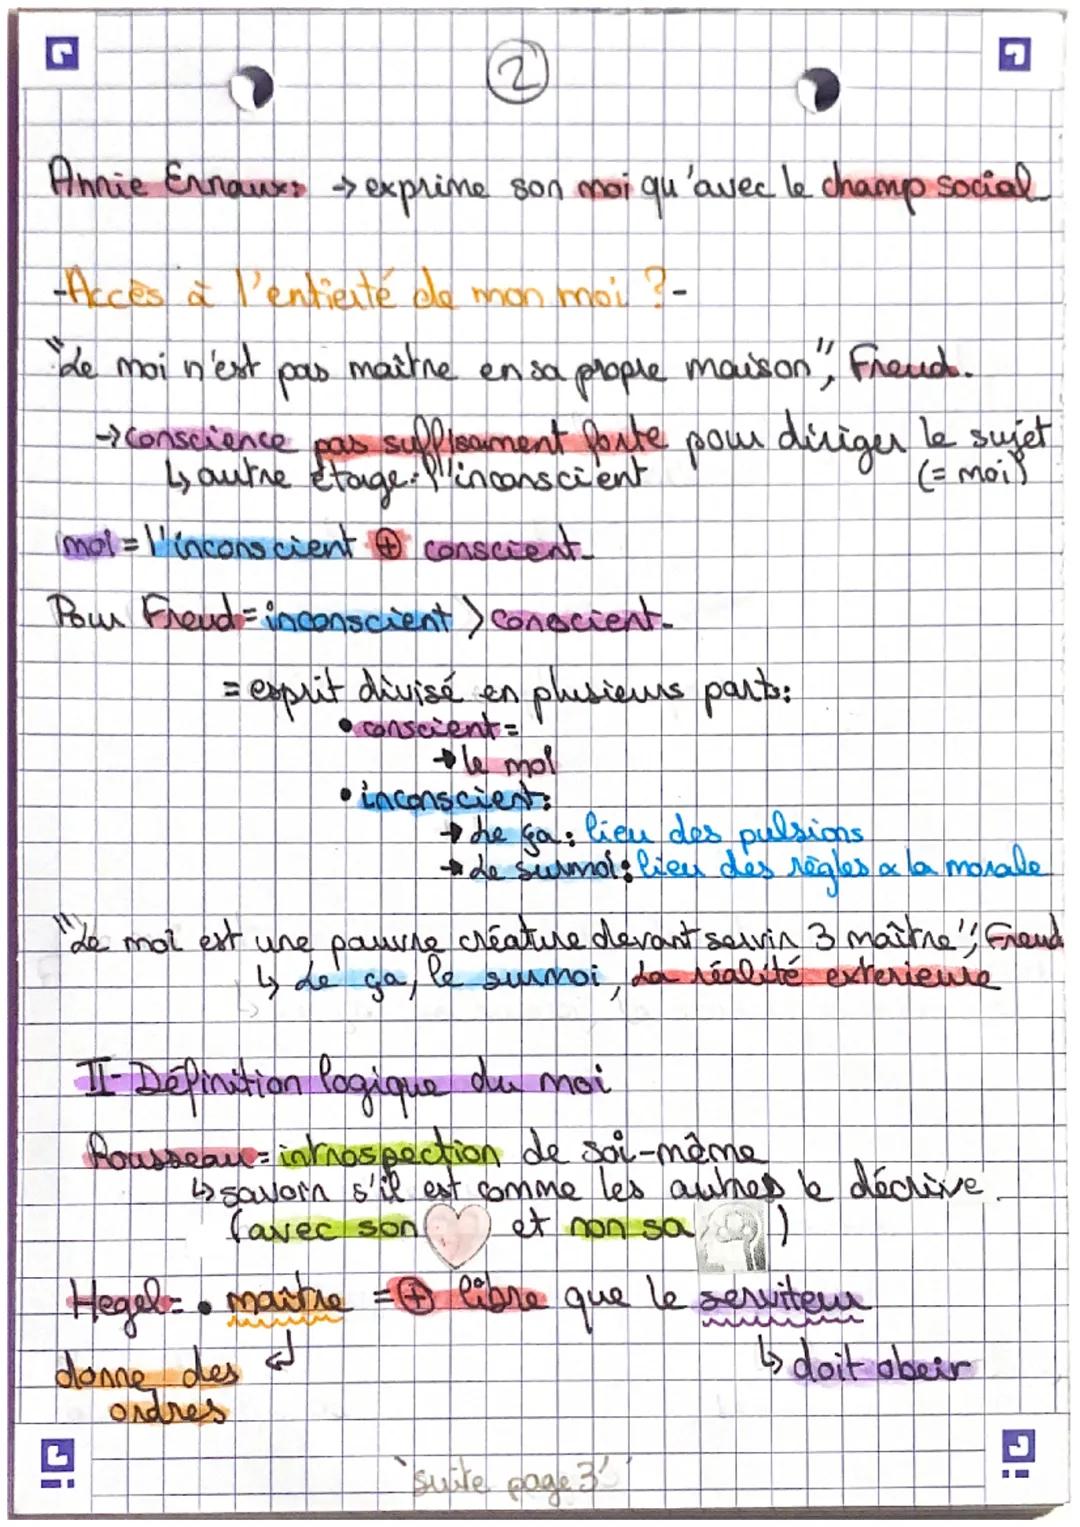 2
Annie Ernaux: → exprime son moi qu'avec le champ social
-Accès à l'entierté de mon moi ?-
"Le moi n'est pas maître en sa propre maison", Freud.
→ conscience pas suffisament forte pour diriger le sujet
↳ autre étage: l'inconscient (= moi)
moi = l'inconscient ⊕ conscient
Pour Freud = inconscient > conscient
= esprit divisé en plusieurs parts:
• conscient =
→ le moi
• inconscient:
→ Le ça: lieu des pulsions
→ Le surmoi: lieu des règles & la morale
"Le moi est une pauvre créature devant servir 3 maître", Freud
↳ Le ça, le surmoi, La réalité exterieure
II- Définition logique du moi
Rousseau = introspection de soi-même
↳ savoir s'il est comme les autres le décrive.
(avec son et non sa )
Hegel = • maître = ⊕ libre que le serviteur
donne des ↳ doit obeir
ordres
'suite page 3'